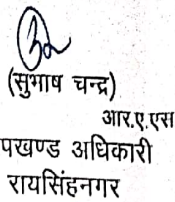 (सुभाष चन्द्र)
आर.ए.एस
पखण्ड अधिकारी
रायसिंहनगर